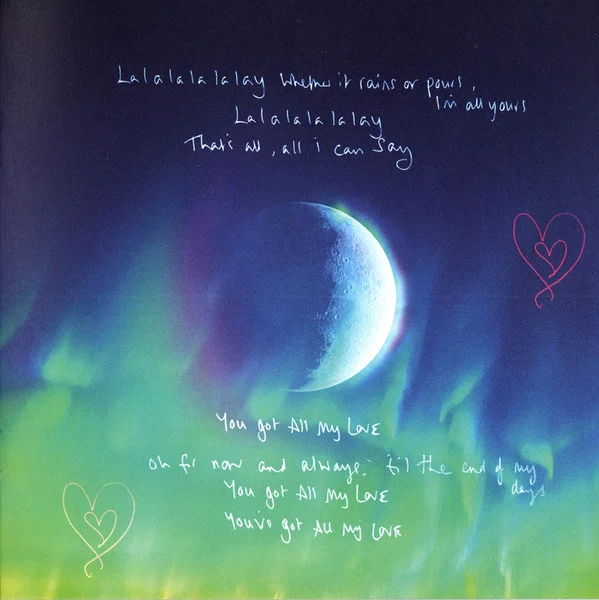 Lalalalalalay whether it rains or pours,
I'm all yours
Lalalalalalay
That's all, all i can say
You got All My Love
Oh for now and always, 'til the end of my
days
You got All My Love
You've got All My Love